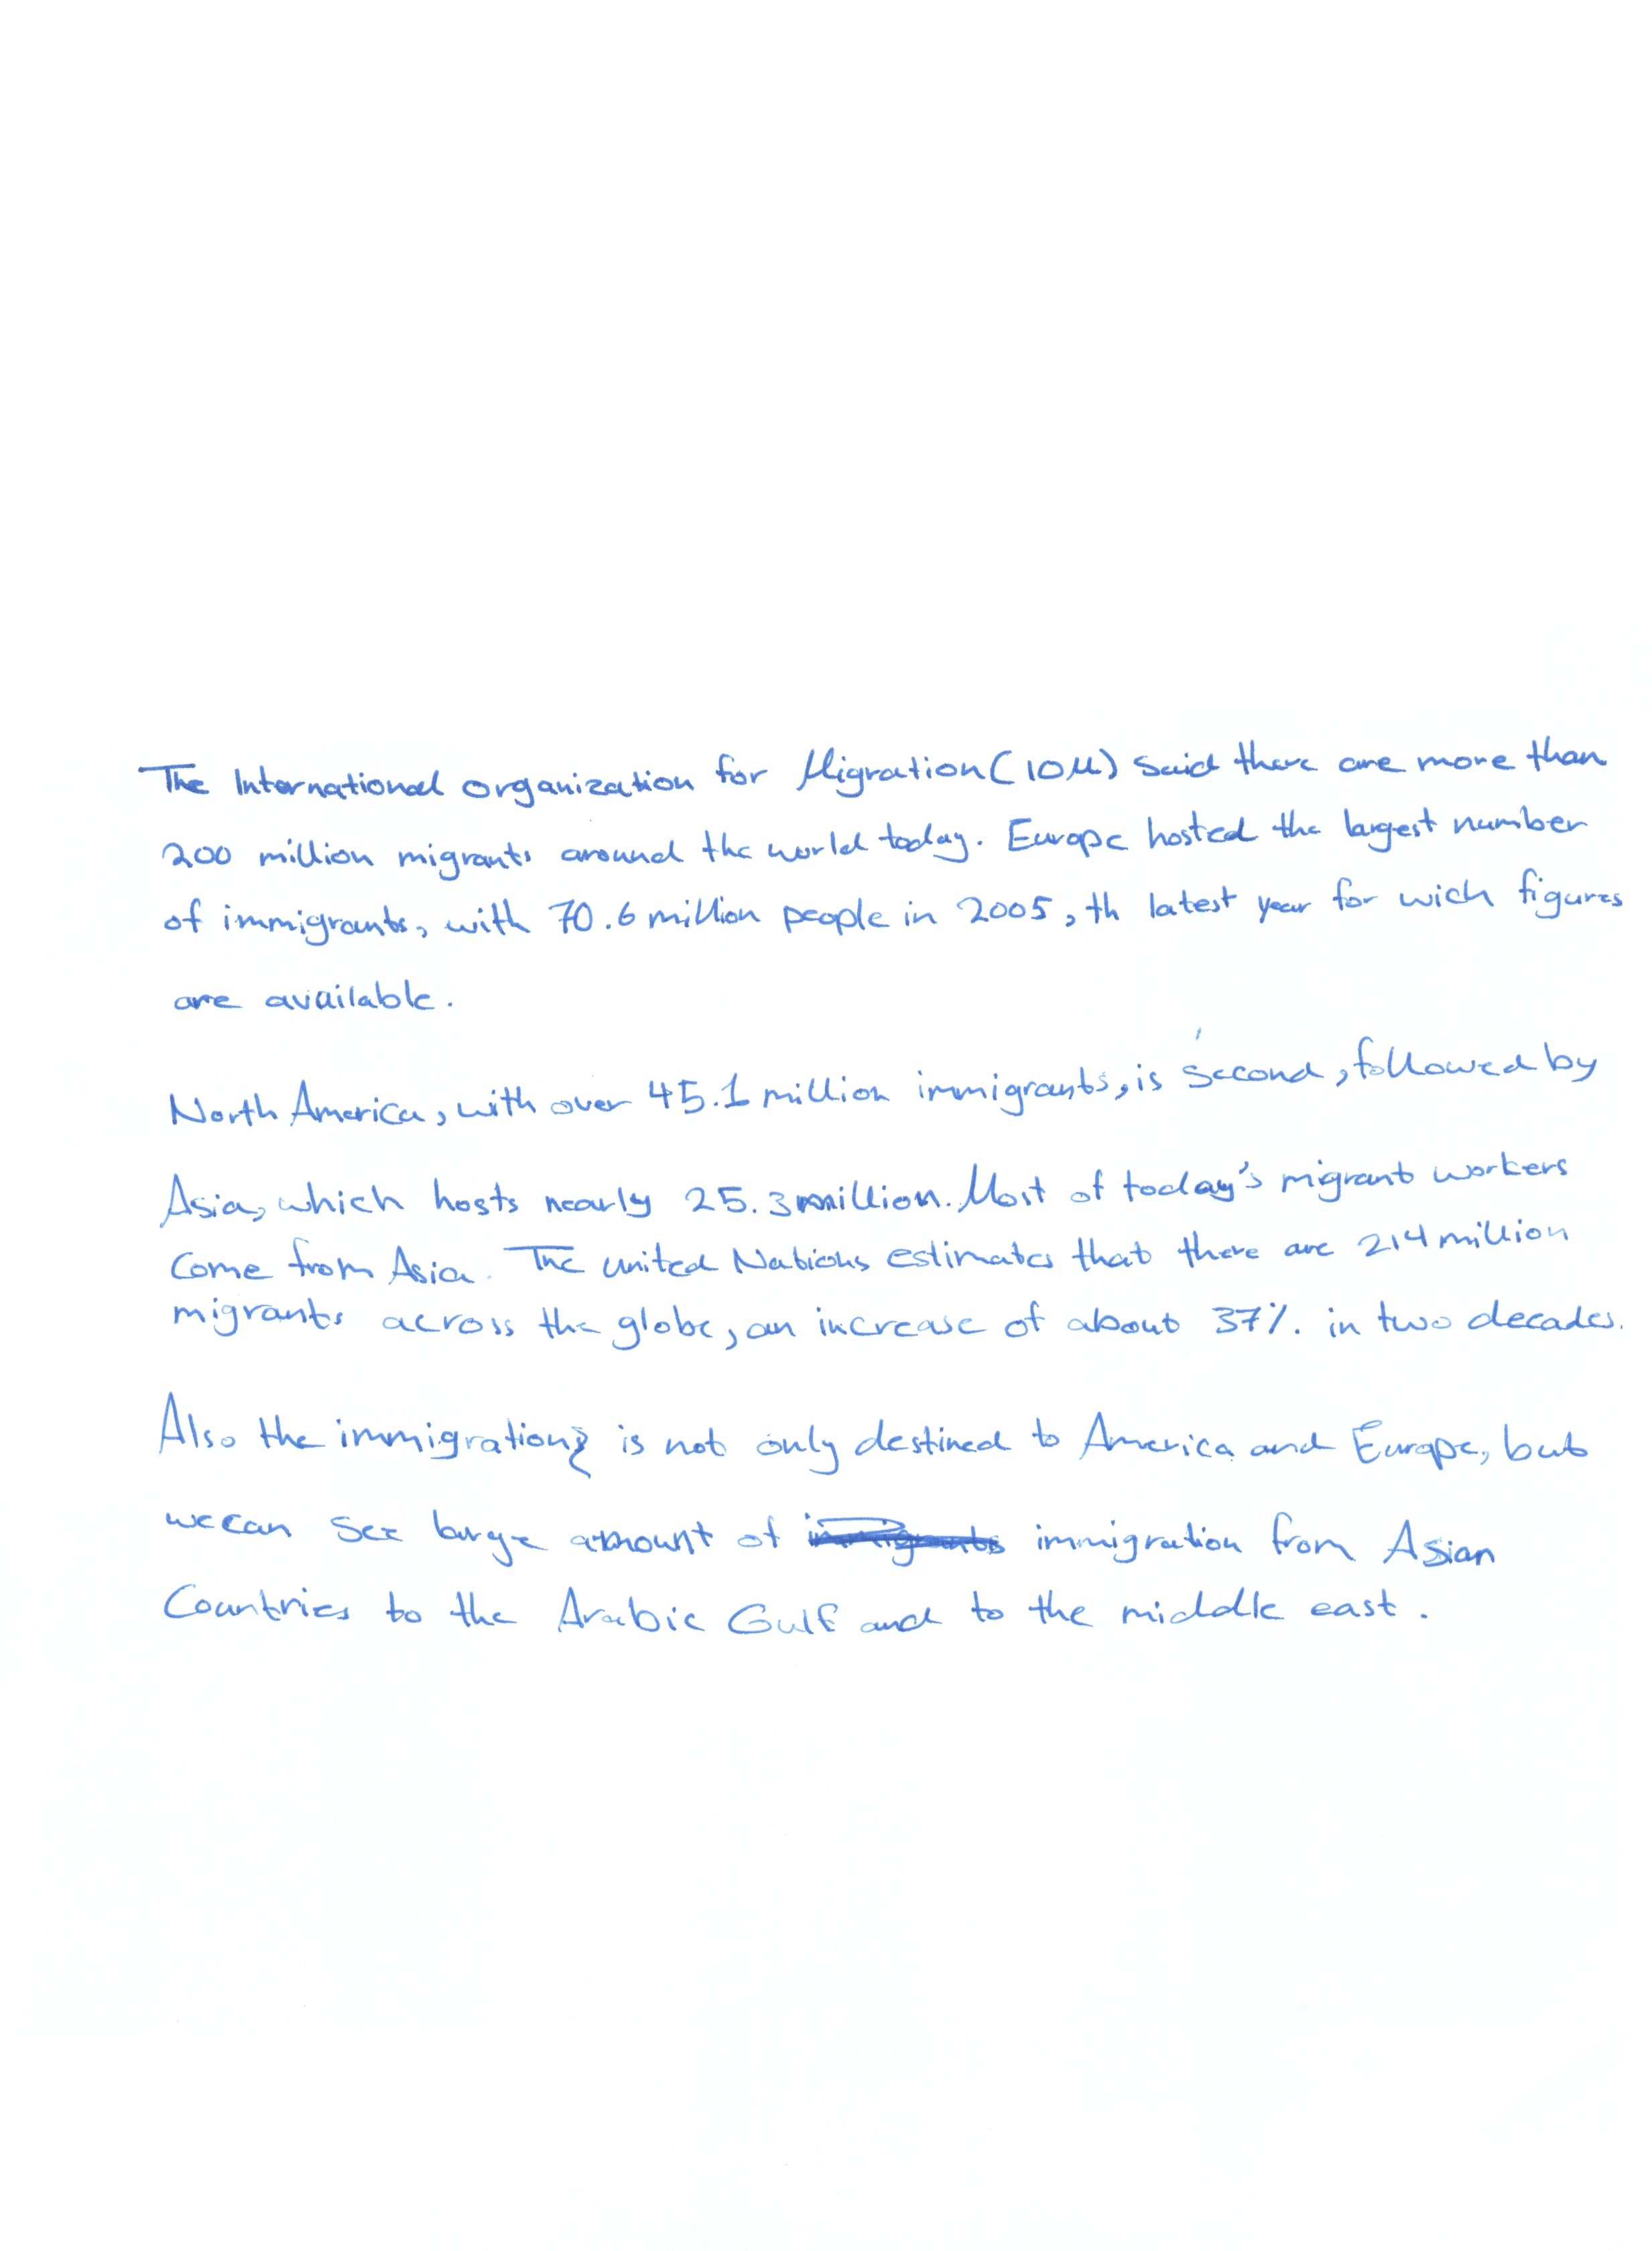 The International organization for Migration (IOM) said there are more than
200 million migrants around the world today. Europe hosted the largest number
of immigrants, with 70.6 million people in 2005, th latest year for wich figures
are available.
North America, with over 45.1 million immigrants, is second, followed by
Asia, which hosts nearly 25.3 million. Most of today's migrant workers
come from Asia. The united Nations estimates that there are 214 million
migrants across the globe, an increase of about 37% in two decades.
Also the immigration is not only destined to America and Europe, but
we can see large amount of immigration from Asian
Countries to the Arabic Gulf and to the middle east.